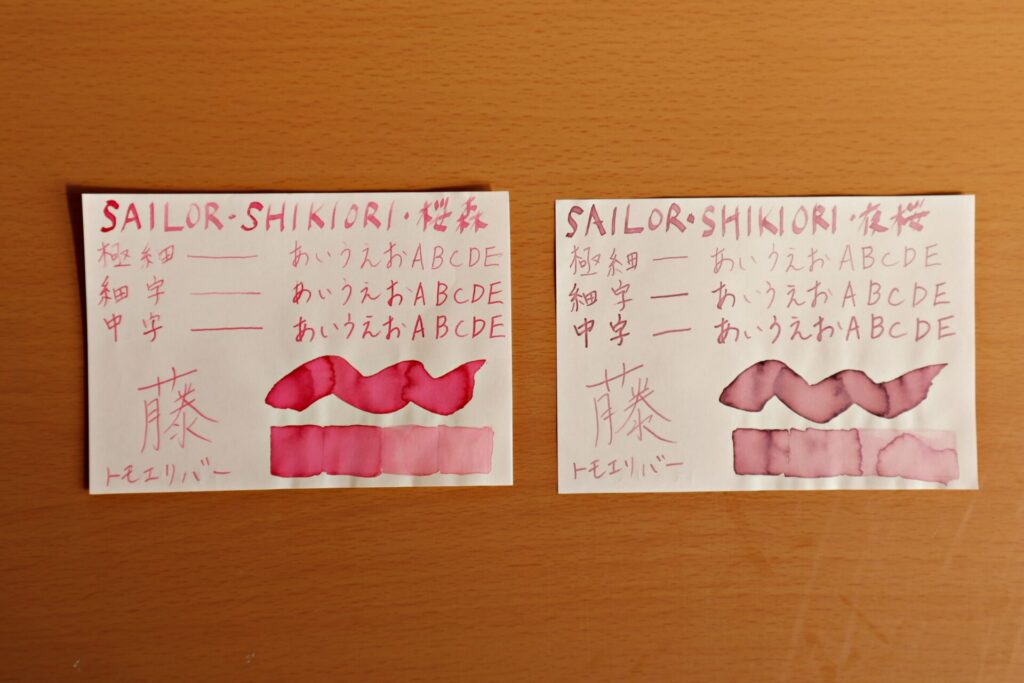 SAILOR・SHIKIORI・桜森
極細 — あいうえおABCDE
細字 — あいうえおABCDE
中字 — あいうえおABCDE
藤
トモエリバー
SAILOR・SHIKIORI・夜桜
極細 — あいうえおABCDE
細字 — あいうえおABCDE
中字 — あいうえおABCDE
藤
トモエリバー